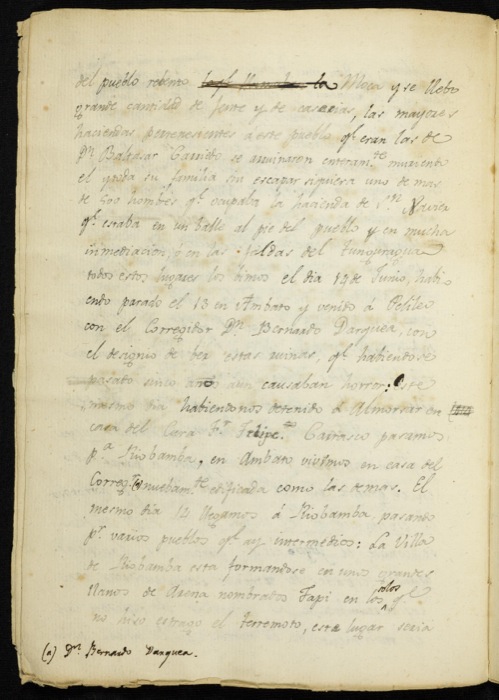 del pueblo rebento la Moca y se llebo
grande cantidad de jente y de caserias, las mayores
haciendas pertenecientes a este pueblo q.e eran las de
D.n Baltasar Garrido se arruinaron enteram.te muriendo
el y toda su familia sin escapar siquiera uno de mas
de 500 hombres q.e ocupaba la hacienda de S.n Xavier
q.e estaba en un balle al pie del pueblo y en mucha
inmediacion, o en las faldas del Tunguragua
todos estos lugares los bimos el dia 14 de Junio, habi
endo parado el 13 en Ambato y venido á Pelileo
con el Corregidor D.n Bernardo Darquea, con
el designio de ber estas ruinas, q.e habiendose
pasado cinco años aun causaban horror: este
mismo dia habiendonos detenido á Almorsar en
casa del Cura D.r Felipe Carrasco pasamos
p.a Riobamba, en Ambato vivimos en casa del
Correg.r (a) nuebam.te edificada como las demas. El
mesmo dia 14 llegamos á Riobamba, pasando
p.r varios pueblos q.e ay intermedios: La Villa
de Riobamba esta formandose en unos grandes
llanos de Arena nombrados Tapi en los solos q.e
no hiso estrago el terremoto, este lugar seria
(a) D.n Bernardo Darquea.